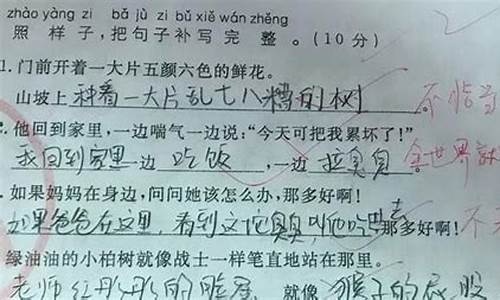 zhào yàng zi bǎ jù zi bǔ xiě wán zhěng
照 样 子，把 句 子 补 写 完 整 。（10 分）
1. 门前开着一大片五颜六色的鲜花。
山坡上 种着一大片乱七八糟的树 。
他回到家里，一边喘气一边说：“今天可把我累坏了！”
我回到家里一边 吃饭 ，一边 拉臭臭
如果妈妈在身边，问问她该怎么办，那多好啊！
如果爸爸在这里，看到这坨臭臭叫他吃去 那多好啊！
绿油油的小柏树就像战士一样笔直地站在那里。
老师红彤彤的脸蛋 就像 猴子的屁股